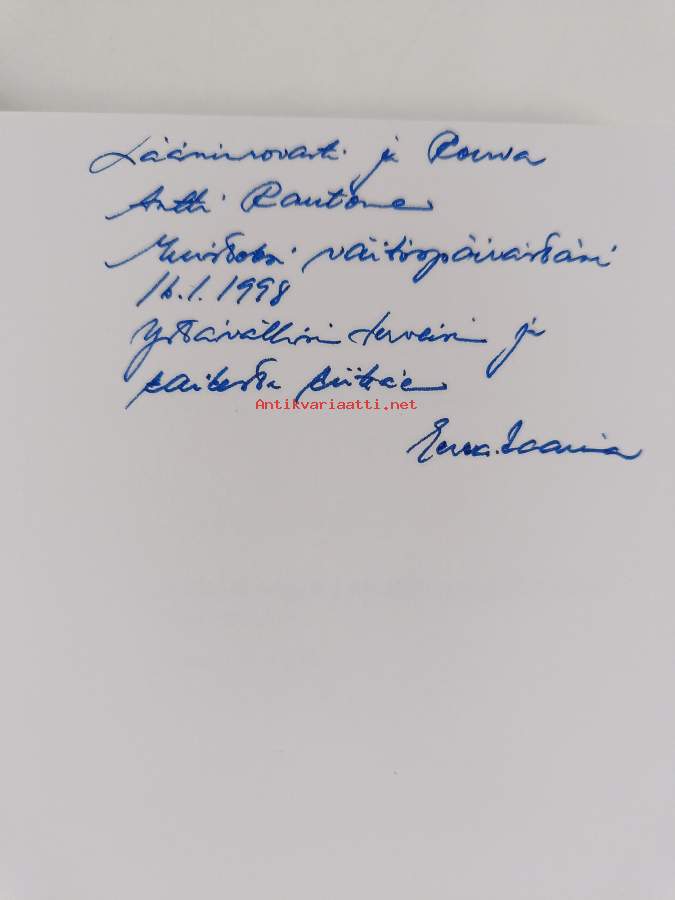 Lääninrovasti ja Rouva
Antti Rautome
Muistoksi väitöspäivästäni
16.1.1998
Ystävällisin terveisin ja
kaikesta kiittäen
Antikvariaatti.net
Eeva-Maaria